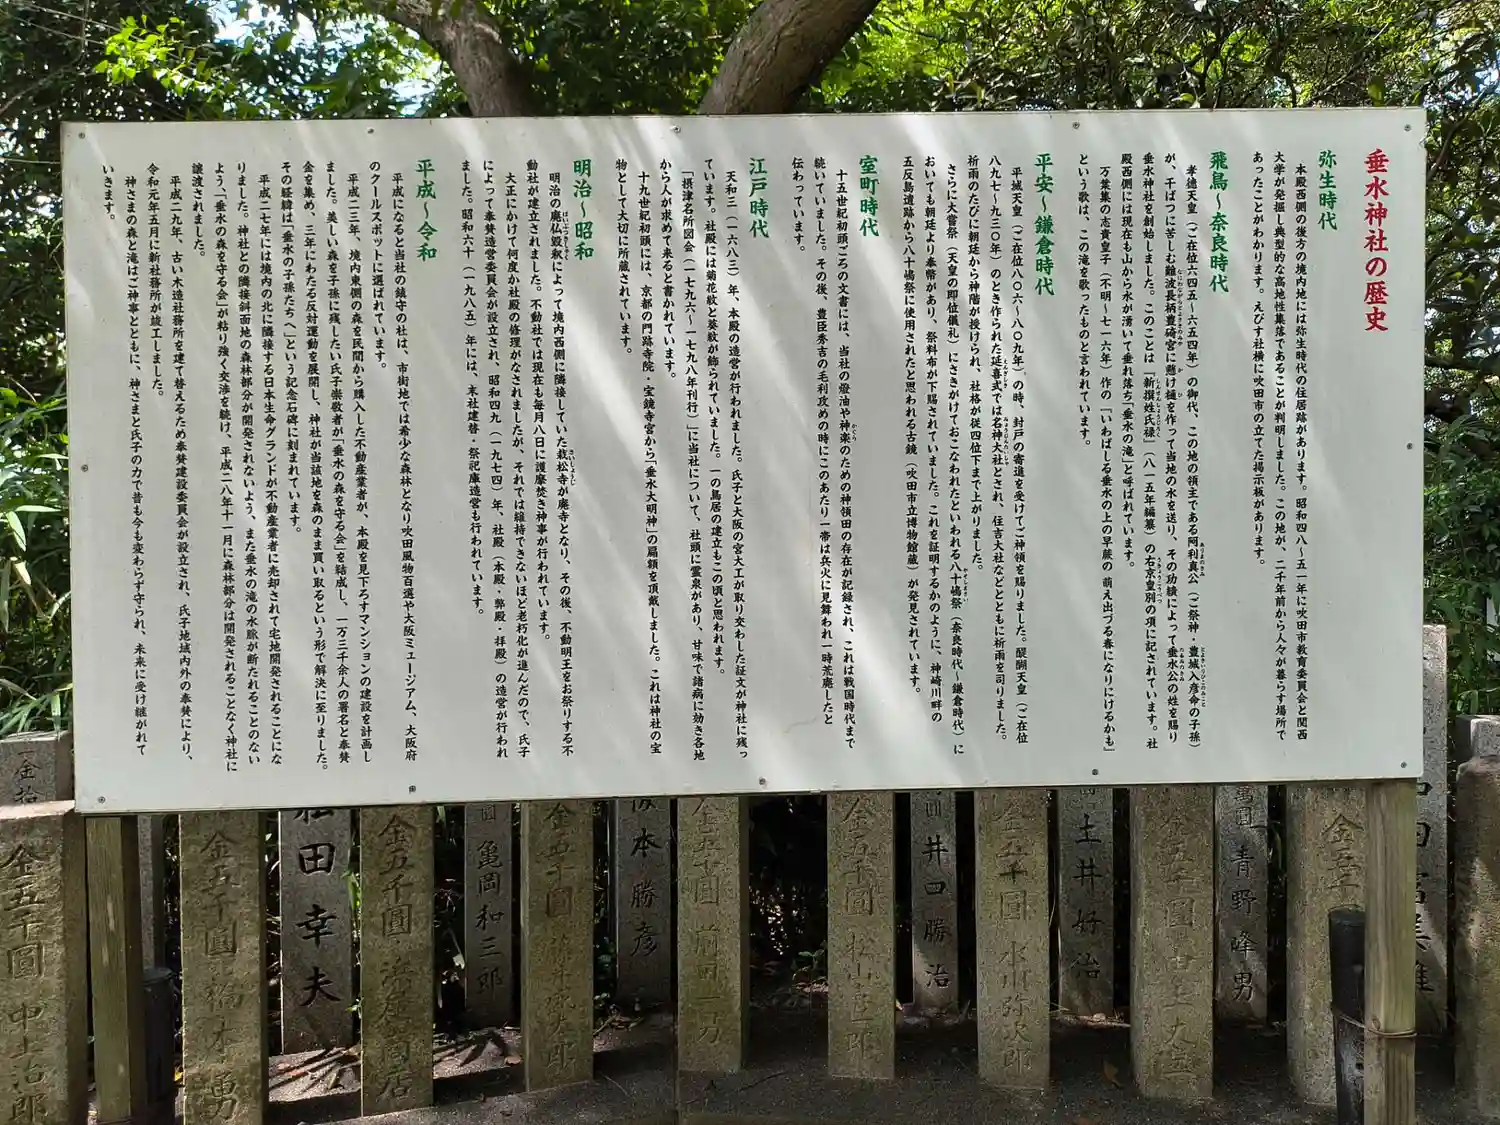 垂水神社の歴史
弥生時代
本殿西側の後方の境内地には弥生時代の住居跡があります。昭和四八〜五一年に吹田市教育委員会と関西
大学が発掘し典型的な高地性集落であることが判明しました。この地が、二千年前から人々が暮らす場所で
あったことがわかります。えびす社横に吹田市の立てた掲示板があります。
飛鳥〜奈良時代
孝徳天皇(ご在位六四五〜六五四年)の御代、この地の領主である阿利真公(ご祭神・豊城入彦命の子孫)
が、干ばつに苦しむ難波長柄豊碕宮に懸け樋を作って当地の水を送り、その功績によって垂水公の姓を賜り
垂水神社を創始しました。このことは「新撰姓氏禄」(八一五年編纂)の右京皇別の項に記されています。社
殿西側には現在も山から水が湧いて垂れ落ち「垂水の滝」と呼ばれています。
万葉集の志貴皇子(不明〜七一六年)作の「いわばしる垂水の上の早蕨の 萌え出づる春になりにけるかも」
という歌は、この滝を歌ったものと言われています。
平安〜鎌倉時代
平城天皇(ご在位八〇六〜八〇九年)の時、封戸の寄進を受けてご神領を賜りました。醍醐天皇(ご在位
八九七〜九三〇年)のとき作られた延喜式では名神大社とされ、住吉大社などとともに祈雨を司りました。
祈雨のたびに朝廷から神階が授けられ、社格が従四位下まで上がりました。
さらに大嘗祭(天皇の即位儀礼)にさきがけておこなわれたといわれる八十嶋祭(奈良時代〜鎌倉時代)に
おいても朝廷より奉幣があり、祭料布が下賜されていました。これを証明するかのように、神崎川畔の
五反島遺跡から八十嶋祭に使用されたと思われる古鏡(吹田市立博物館蔵)が発見されています。
室町時代
十五世紀初頭ごろの文書には、当社の燈油や神楽のための神領田の存在が記録され、これは戦国時代まで
続いていました。その後、豊臣秀吉の毛利攻めの時にこのあたり一帯は兵火に見舞われ一時荒廃したと
伝わっています。
江戸時代
天和三(一六八三)年、本殿の造営が行われました。氏子と大阪の宮大工が取り交わした証文が神社に残っ
ています。社殿には菊花紋と葵紋が飾られていました。一の鳥居の建立もこの頃と思われます。
「摂津名所図会(一七九六〜一七九八年刊行)」に当社について、社頭に霊泉があり、甘味で諸病に効き各地
から人が求めて来ると書かれています。
十九世紀初頭には、京都の門跡寺院・宝鏡寺宮から「垂水大明神」の扁額を頂戴しました。これは神社の宝
物として大切に所蔵されています。
明治〜昭和
明治の廃仏毀釈によって境内西側に隣接していた栽松寺が廃寺となり、その後、不動明王をお祭りする不
動社が建立されました。不動社では現在も毎月八日に護摩焚き神事が行われています。
大正にかけて何度か社殿の修理がなされましたが、それでは維持できないほど老朽化が進んだので、氏子
によって奉賛造営委員会が設立され、昭和四九(一九七四)年、社殿(本殿・弊殿・拝殿)の造営が行われ
ました。昭和六十(一九八五)年には、末社建替・祭祀庫造営も行われています。
平成〜令和
平成になると当社の鎮守の杜は、市街地では希少な森林となり吹田風物百選や大阪ミュージアム、大阪府
のクールスポットに選ばれています。
平成二三年、境内東側の森を民間から購入した不動産業者が、本殿を見下ろすマンションの建設を計画し
ました。美しい森を子孫に残したい氏子崇敬者が「垂水の森を守る会」を結成し、一万三千余人の署名と奉賛
金を集め、三年にわたる反対運動を展開し、神社が当該地を森のまま買い取るという形で解決に至りました。
その経緯は「垂水の子孫たちへ」という記念石碑に刻まれています。
平成二七年には境内の北に隣接する日本生命グランドが不動産業者に売却されて宅地開発されることにな
りました。神社との隣接斜面地の森林部分が開発されないよう、また垂水の滝の水脈が断たれることのない
よう、「垂水の森を守る会」が粘り強く交渉を続け、平成二八年十一月に森林部分は開発されることなく神社に
譲渡されました。
平成二九年、古い木造社務所を建て替えるため奉賛建設委員会が設立され、氏子地域内外の奉賛により、
令和元年五月に新社務所が竣工しました。
神さまの森と滝はご神事とともに、神さまと氏子の力で昔も今も変わらず守られ、未来に受け継がれて
いきます。
萬圓 青野峰男
土井好治
圓 井口勝治
金五千圓 水川弥次郎
金五千圓 松山
金五千圓 前田
本勝彦
金五千圓
圓 亀岡和三郎
金五千圓
田幸夫
金五千圓 橋本勇
金五千圓 中土治郎
金拾